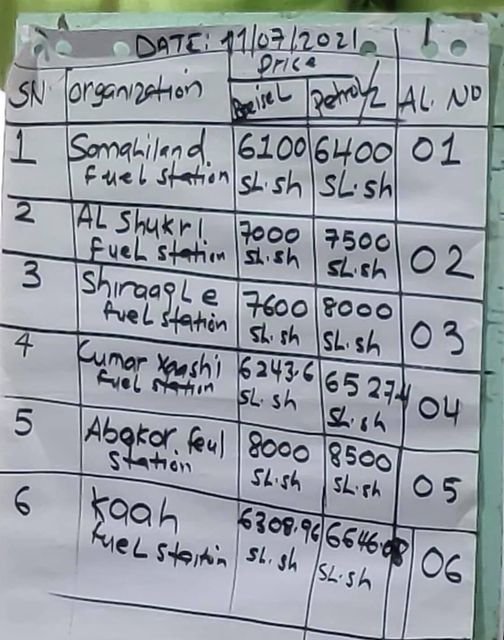 DATE: 11/07/2021
Price
SN organization Deisel Petrol/L AL. NO
1 Somahiland 6100 6400 01
fuel station SL.sh SL.sh
2 AL Shukri 7000 7500 02
fuel station SL.sh SL.sh
3 Shiraaqle 7600 8000 03
fuel station SL.sh SL.sh
4 Cumar xaashi 6243.6 6527.4 04
fuel station SL.sh SL.sh
5 Abgkor. feul 8000 8500 05
station SL.sh SL.sh
6 Kaah 6308.96 6646.08 06
fuel staition SL.sh SL.sh